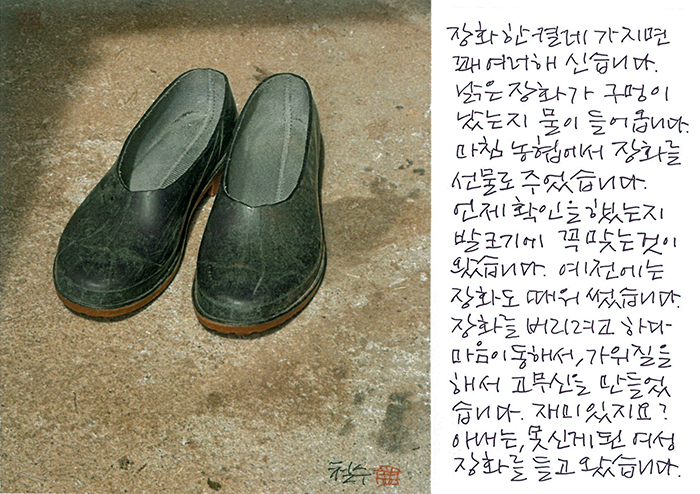 장화 한 켤레 가지면
꽤 여러해 신습니다.
낡은 장화가 구멍이
났는지 물이 들어옵니다.
마침 농협에서 장화를
선물로 주었습니다.
언제 확인을 했는지
발크기에 꼭 맞는 것이
왔습니다. 예전에는
장화도 때워 썼습니다.
장화를 버리려고 하다
마음이 동해서, 가위질을
해서 고무신을 만들었
습니다. 재미있지요?
아내는, 못신게 된 여성
장화를 들고 왔습니다.
철수